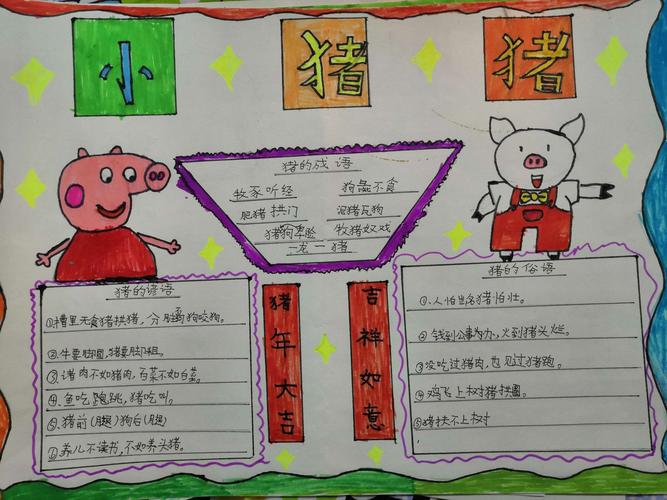 小猪猪
猪的成语
牧豕听经 狗彘不食
肥猪拱门 泥猪瓦狗
猪狗 脸 牧猪奴戏
一龙一猪
猪的谚语
①槽里无食猪拱猪，分 狗咬狗。
②牛要脚圆,猪要脚粗。
③诸肉不如猪肉，百菜不如白菜。
④、鱼吃跳，猪吃叫。
⑤、猪前(腿)狗后(腿)
①养儿不读书,不如养头猪。
猪年大吉
吉祥如意
猪的俗语
①、人怕出名猪怕壮。
② 钱到公事办,火到猪头烂。
③没吃过猪肉,也见过猪跑。
④鸡飞上树猪拱圈。
⑤猪扶不上树